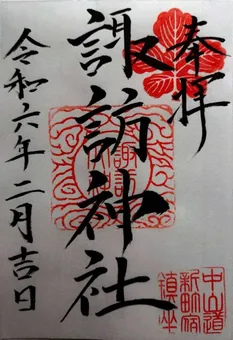 奉拝
諏訪神社
令和六年二月吉日
中山道
新町宿
鎮座